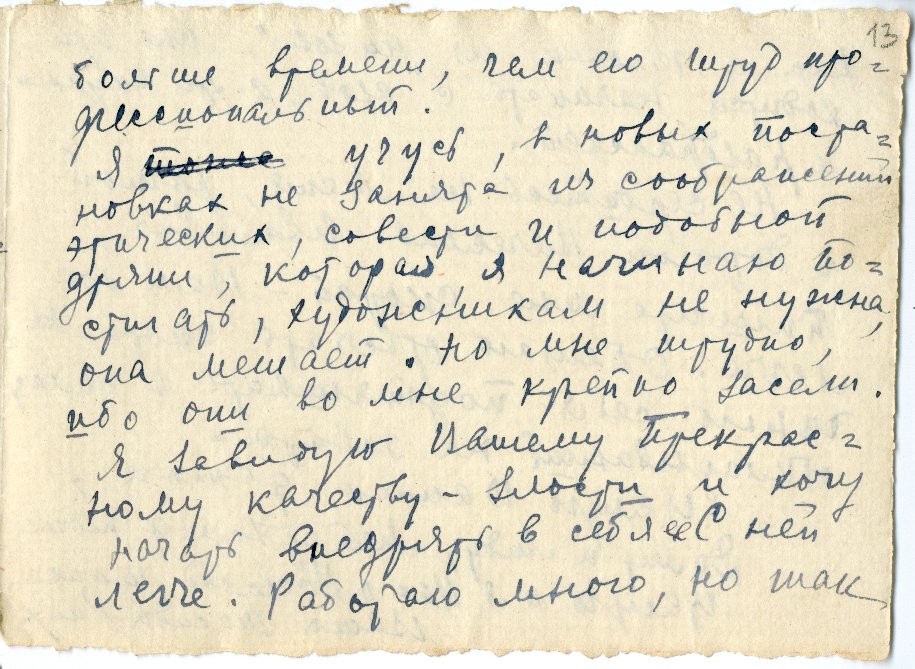 13
больше времени, чем его труд про=
фессиональный.
Я тоже учусь, в новых поста=
новках не занята из соображений
этических, совести и подобной
дряни, которая, я начинаю по=
стигать, художникам не нужна,
она мешает. Но мне трудно,
ибо они во мне крепко засели.
Я завидую Вашему прекрас=
ному качеству – злости и хочу
начать внедрять в себя её. С ней
легче. Работаю много, но так